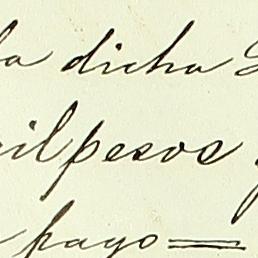 la dicha
mil pesos
pago=